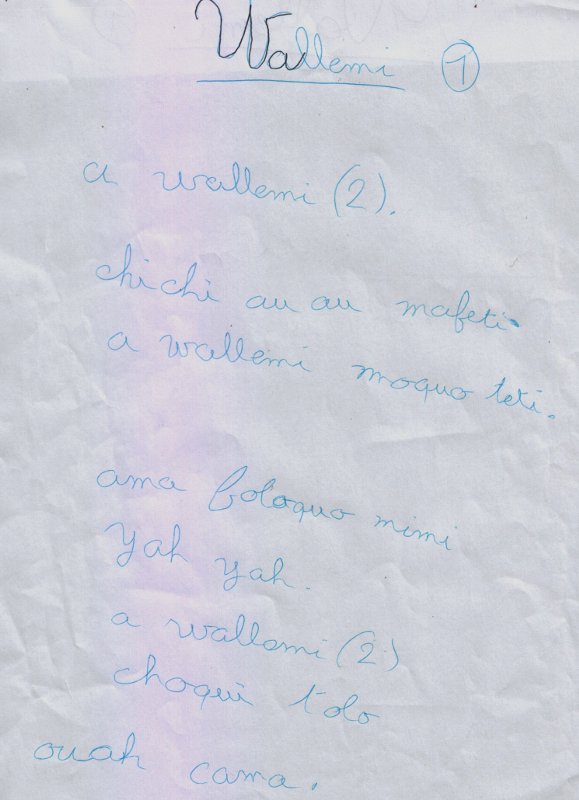 Wallemi 1
a wallemi (2).
chichi au au mafeti.
a wallemi moquo teti.
ama foloquo mimi
Yah yah.
a wallemi (2)
choqui tolo
ouah cama.